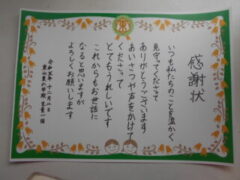 感謝状
いつも私たちのことを温かく
見守ってくださって
ありがとうございます
あいさつや声をかけて
くださって
とてもうれしいです
これからもお世話に
なると思いますが
よろしくお願いします